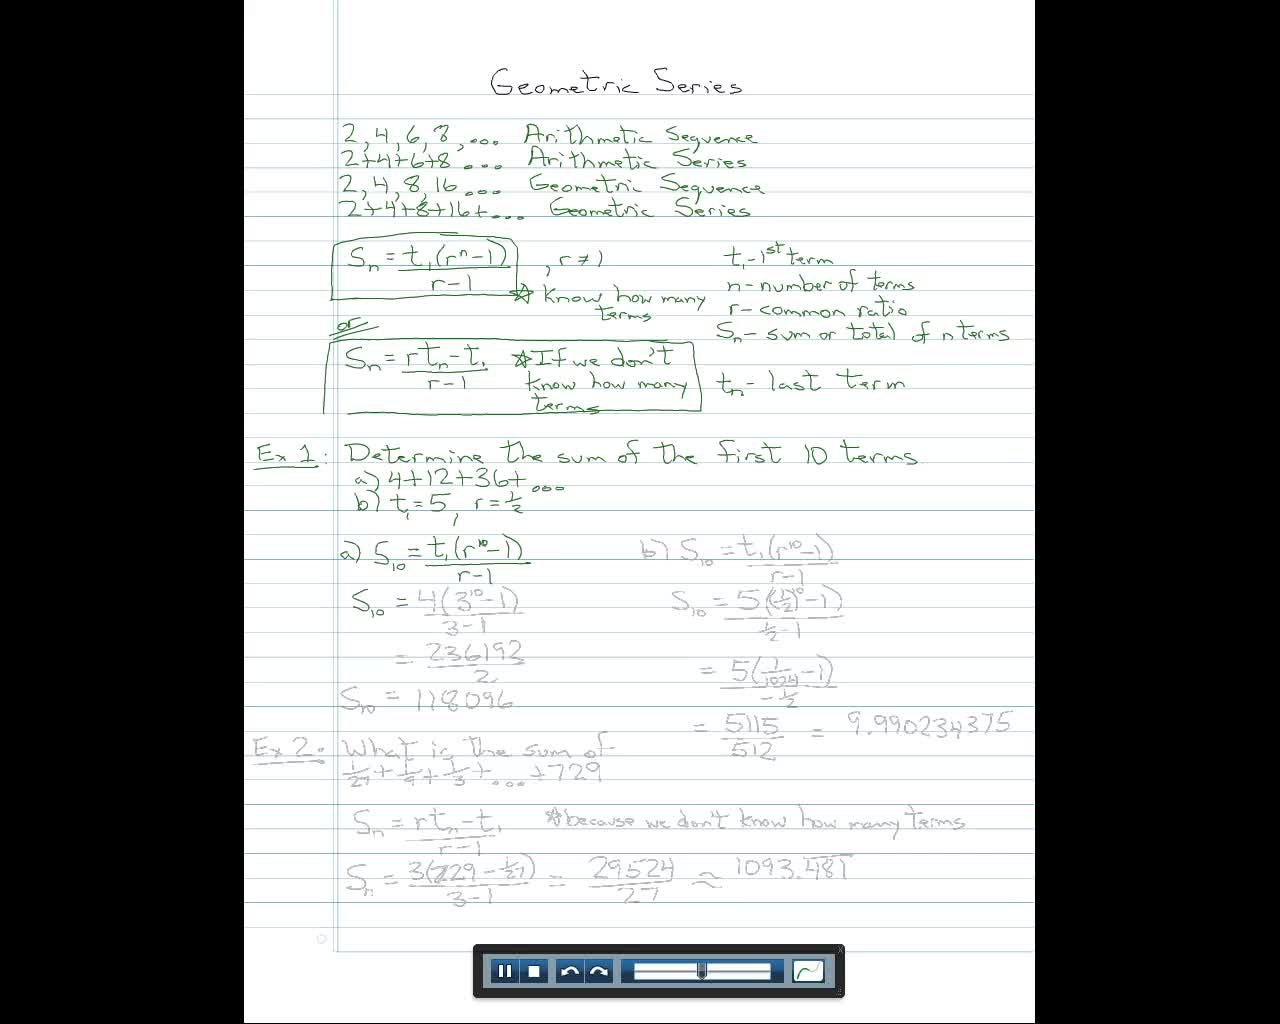 Geometric Series
2, 4, 6, 8, ... Arithmetic Sequence
2+4+6+8 ... Arithmetic Series
2, 4, 8, 16 ... Geometric Sequence
2+4+8+16+... Geometric Series
Sₙ = t₁(rⁿ-1) / r-1 , r ≠ 1
☆ know how many terms
t₁ - 1ˢᵗ term
n - number of terms
r - common ratio
Sₙ - sum or total of n terms
or
Sₙ = rtₙ - t₁ / r-1 ☆ If we don't know how many terms
tₙ - last term
Ex 1: Determine the sum of the first 10 terms
a) 4+12+36+ ...
b) t₁ = 5, r = 1/2
a) S₁₀ = t₁(r¹⁰-1) / r-1
S₁₀ = 4(3¹⁰-1) / 3-1
= 236192 / 2
S₁₀ = 118096
b) S₁₀ = t₁(r¹⁰-1) / r-1
S₁₀ = 5((1/2)¹⁰-1) / 1/2-1
= 5(1/1024 - 1) / -1/2
= 5115/512 = 9.990234375
Ex 2: What is the sum of
1/27 + 1/9 + 1/3 + ... +729
Sₙ = rtₙ - t₁ / r-1 ☆ because we don't know how many terms
Sₙ = 3(729 - 1/27) / 3-1 = 29524/27 ≈ 1093.4̅8̅1̅